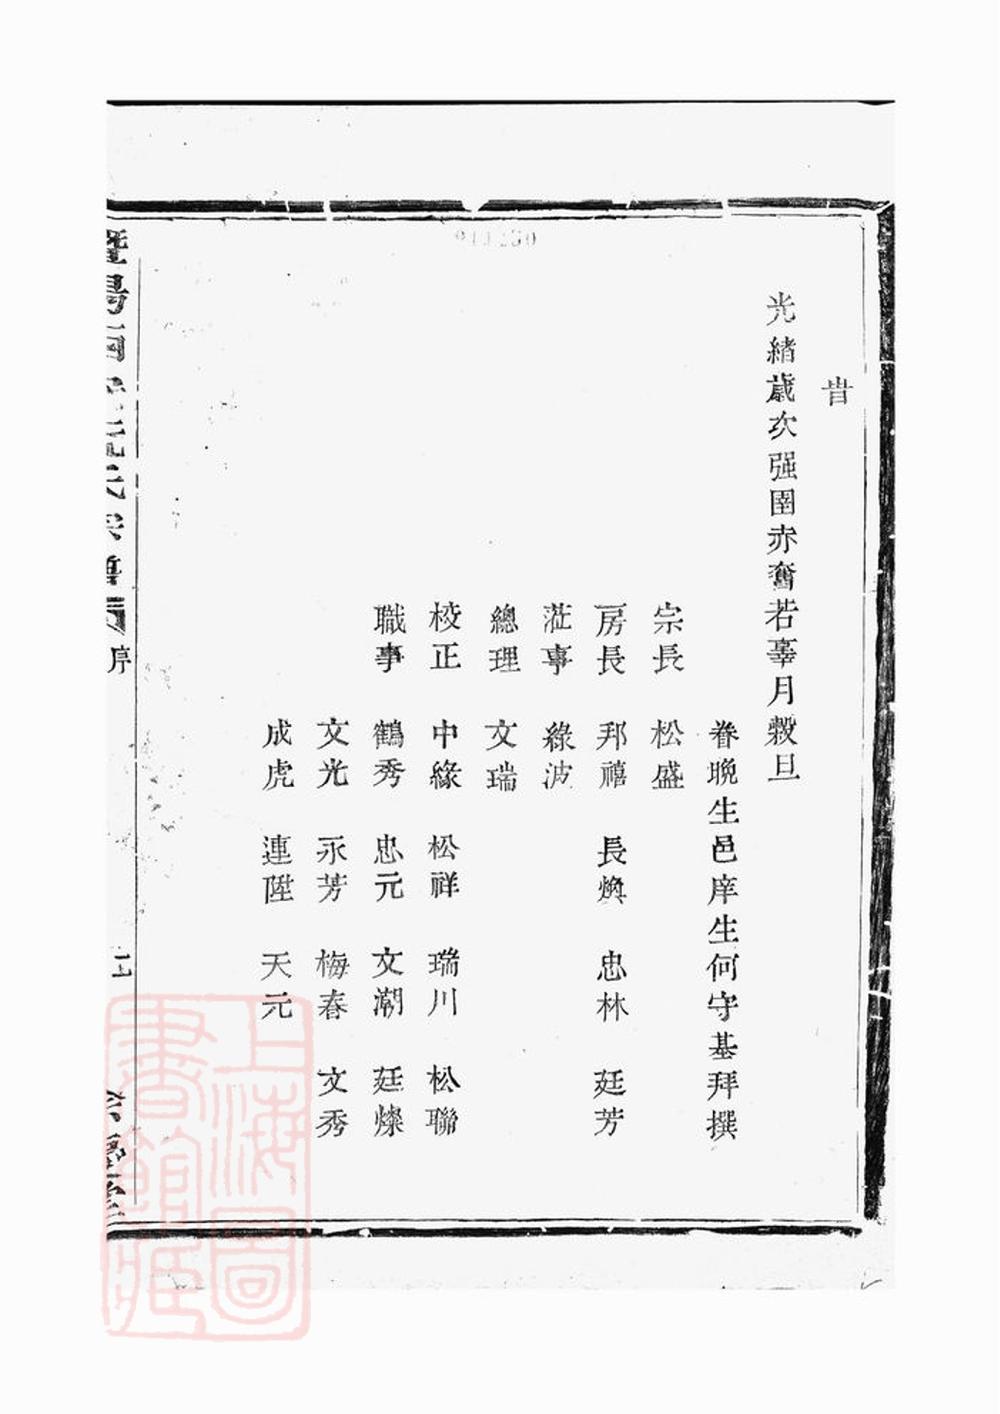 旹
光緒歲次强圉赤奮若辜月穀旦
眷晚生邑庠生何守基拜撰
宗長 松盛
房長 邦禧 長煥 忠林 廷芳
蒞事 綠波
總理 文瑞
校正 中緣 松祥 瑞川 松聯
職事 鶴秀 忠元 文潮 廷燦
文光 永芳 梅春 文秀
成虎 連陞 天元
暨陽 氏宗譜 序
上海圖書館藏